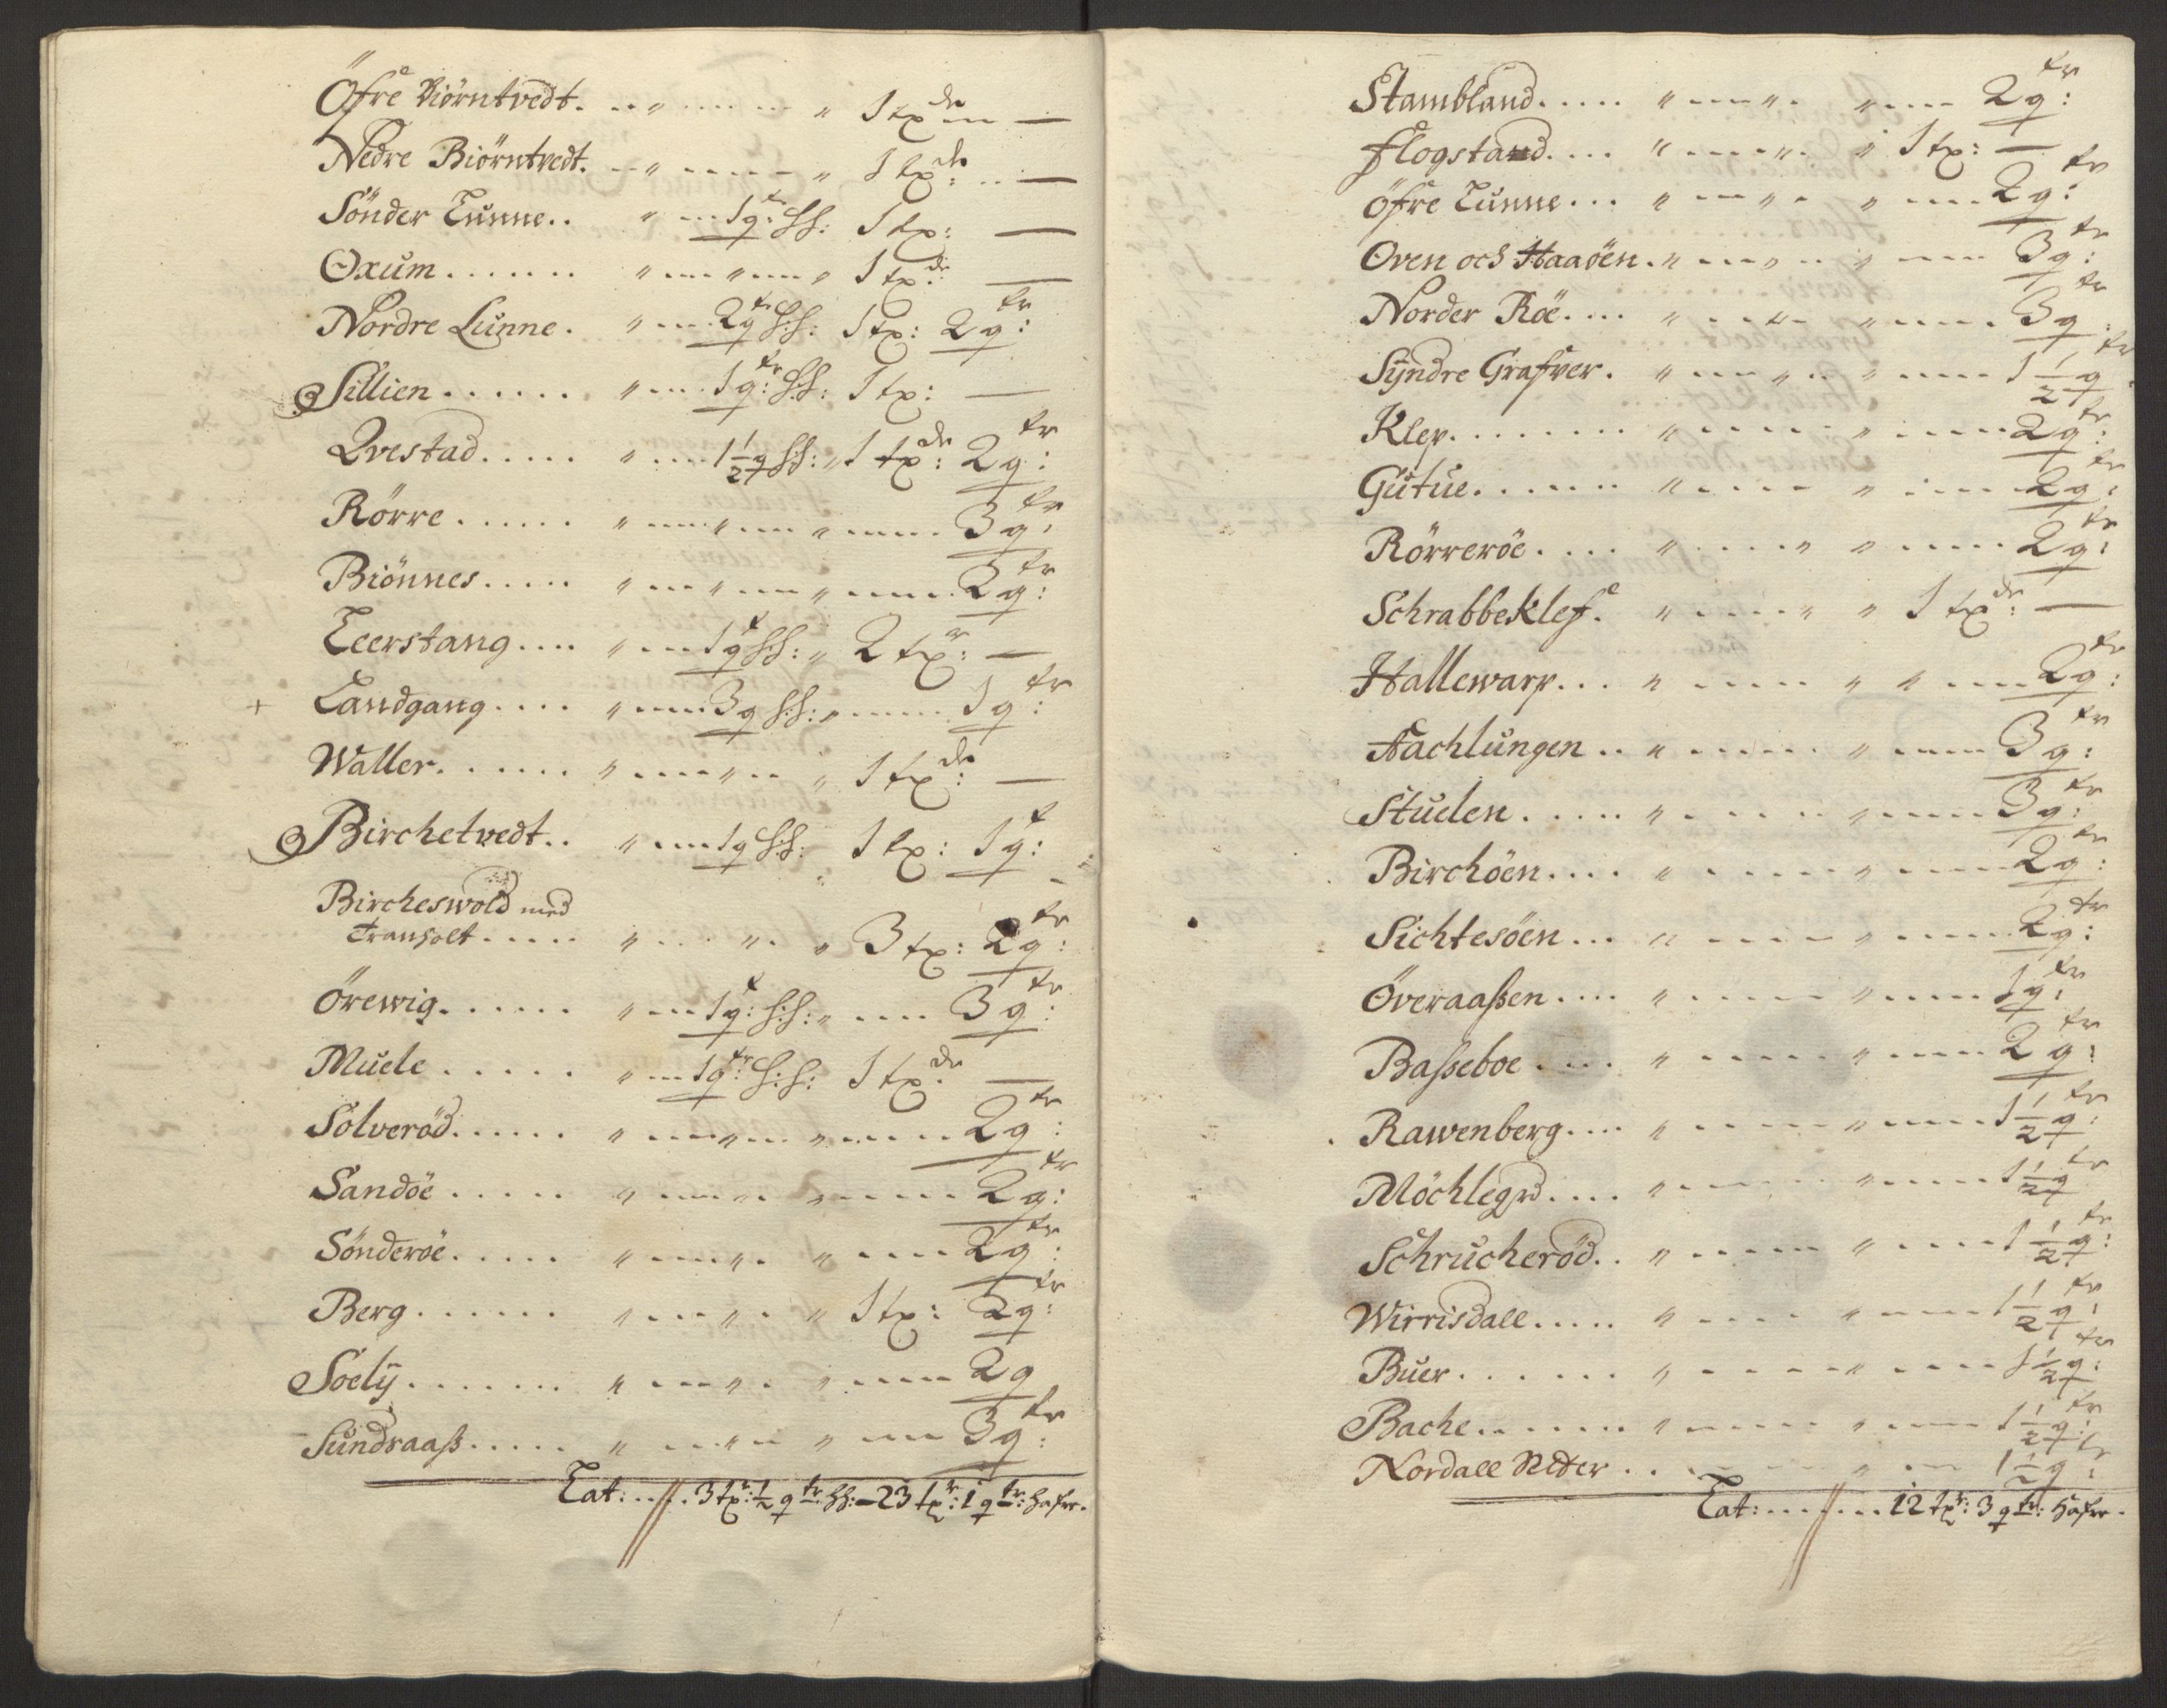 Öfre Biörntvedt. . . „ . . . . . „ 1 tp dr —
Nedre Biörntvedt. . . „ . . . . . „ 1 tp dr: . . —
Sönder Lunne. . „ . . . 1 q tr: h:h: 1 tp: —
Oxum . . . . . . . „ . . . „ . . . „ 1 tp dr: —
Nordre Lunne . „ . . . 2 q tr h:h: 1 tp: 2 q tr:
Sillien . . . . . . „ . . . 1 q tr: h:h: 1 tp: —
Qvestad . . . . . „ . . . 1 1/2 q h:h: „ 1 tp dr: 2 q tr:
Rörre . . . . . . „ . . . „ . . . „ . . . . 3 q tr:
Biönnes . . . . . „ . . . „ . . . „ . . . . 2 q tr:
Leerstang . . . . „ . . . 1 q t h:h: „ 2 tp r: —
+ Landgang . . . . „ . . . 3 q h:h: „ . . . . 1 q tr:
Waller. . . . . . „ . . . . „ . . „ 1 tp dr: —
Birchetvedt. . „ . . . 1 q h:h: 1 tp: 1 q t:
Bircheswold med
Transolt . . . . . „ . . . „ . „ 3 tp: 2 q tr:
Örewig. . . . . . „ . . . 1 q t: h:h: „ . . . . 3 q tr:
Muele . . . . . „ . . . 1 q tr: h:h: 1 tp dr: —
Solveröd. . . . . . „ . . . „ . . . „ . . . . 2 q tr:
Sandöe . . . . . „ . . . „ . . „ . . . . 2 q tr:
Sönderöe. . . . . „ . . . „ . „ . . . . 2 q tr:
Berg . . . . . . „ . . . „ . „ 1 tp: 2 q tr:
Soelÿ . . . . . . . „ . . . „ . „ . . . . 2 q
Sundsaaß . . . . . „ . . . „ . . „ . . . 3 q tr:
Lat: . . . . 3 tp r: 1/2 q tr: h:h: – 23 tp r: 1 q tr: hafre.
Stambland. . . . . „ . . . „ . „ . . . 2 q tr:
Flogstad. . . . „ . . . . „ . „ 1 tp: —
Öfre Lunne . . . „ . . . „ . „ . . . 2 q tr:
Oven och Haaöen. „ . . . „ . . „ . . . 3 q tr:
Norder Röe. . . . „ . . . . „ . . . . 3 q tr:
Sÿndre Grafver. „ . . . „ . . „ . . . . 1 1/2 q tr:
Klep. . . . . . . . „ . . . . . „ . . . . 2 q tr:
Gutue. . . . . . „ . . . . „ . . . . 2 q tr:
Rörreröe . . . . „ . . . . „ „ . . . . 2 q tr:
Schrabbeklef. „ . . . . „ „ 1 tp dr: —
Hallewarp. . . „ . . . . . „ „ . . . 2 q tr:
Aachlungen . . „ . . . . . „ . . . . 3 q tr:
Stuelen . . . . . „ . . . . . „ . . . . 3 q tr:
Birchöen. . . . „ . . . . . „ . . . . 2 q tr:
Sichtesöen . . . „ . . . . . „ . . . . 2 q tr:
Överaaßen . . . . „ . . . . . „ . . . . 1 q tr:
Baßeboe . . . . „ . . . . . „ . . . . 2 q tr:
Rawenberg. . . . „ . . . . . „ . . . . 1 1/2 q tr:
Möchlegrd. . . . „ . . . . . „ . . . . 1 1/2 q tr
Schrucheröd. . „ . . . . . „ . . . . 1 1/2 q tr:
Wirrisdall. . . . . „ . . . . „ . . . . 1 1/2 q tr:
Buer . . . . . . „ . . . . „ . . . . 1 1/2 q tr:
Bache . . . . . . „ . . . . . „ . . . . 1 1/2 q tr:
Nordall Neder . . . . . „ . . . 1 1/2 q tr:
Lat: . . . . . . . 12 tp r: 3 q tr: hafre.